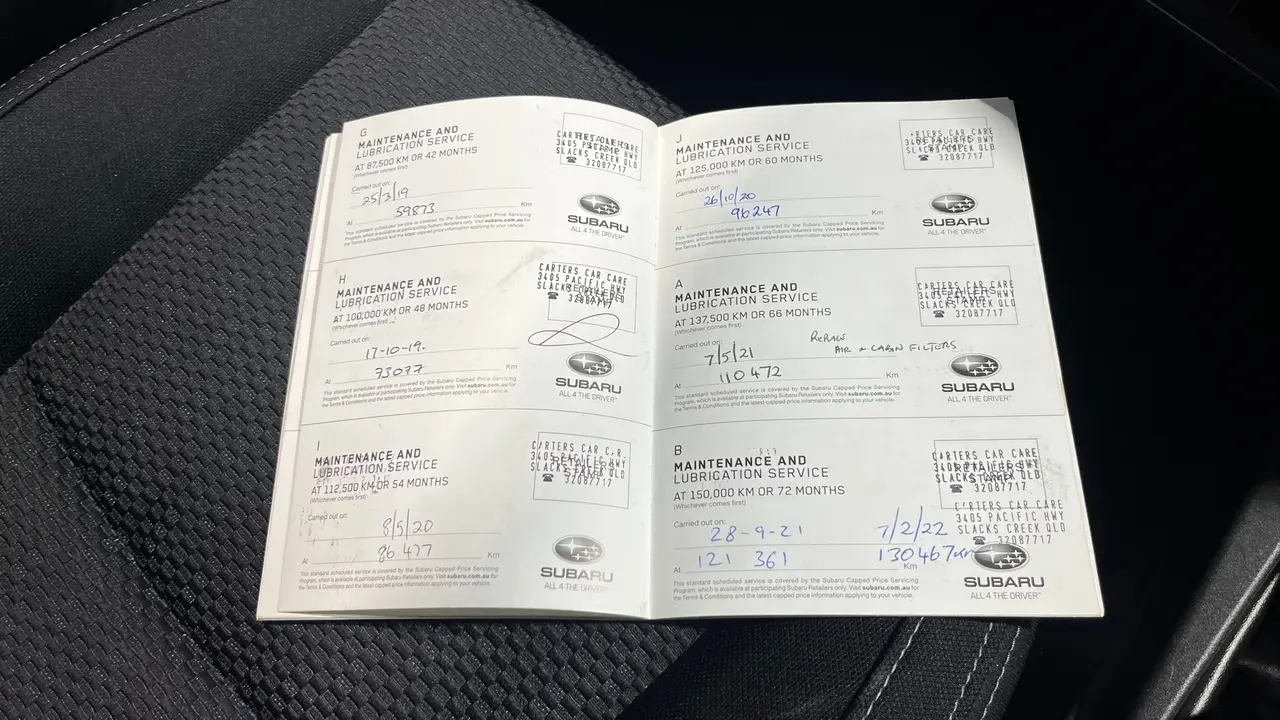 G
MAINTENANCE AND
LUBRICATION SERVICE
AT 87,500 KM OR 42 MONTHS
(Whichever comes first)
Carried out on:
25/3/19
At 59873 Km
This standard scheduled service is covered by the Subaru Capped Price Servicing
Program, which is available at participating Subaru Retailers only. Visit subaru.com.au for
the Terms & Conditions and the latest capped price information applying to your vehicle.
3405 PACIFIC HWY
SLACKS CREEK QLD
☎ 32087717
SUBARU
ALL 4 THE DRIVER™
H
MAINTENANCE AND
LUBRICATION SERVICE
AT 100,000 KM OR 48 MONTHS
(Whichever comes first)
Carried out on:
17-10-19.
At 73077 Km
This standard scheduled service is covered by the Subaru Capped Price Servicing
Program, which is available at participating Subaru Retailers only. Visit subaru.com.au for
the Terms & Conditions and the latest capped price information applying to your vehicle.
CARTERS CAR CARE
3405 PACIFIC HWY
SLACKS CREEK QLD
☎ 32087717
SUBARU
ALL 4 THE DRIVER™
I
MAINTENANCE AND
LUBRICATION SERVICE
AT 112,500 KM OR 54 MONTHS
(Whichever comes first)
Carried out on:
8/5/20
At 86477 Km
This standard scheduled service is covered by the Subaru Capped Price Servicing
Program, which is available at participating Subaru Retailers only. Visit subaru.com.au for
the Terms & Conditions and the latest capped price information applying to your vehicle.
CARTERS CAR
3405 PACIFIC HWY
SLACKS CREEK QLD
☎ 32087717
SUBARU
ALL 4 THE DRIVER™
J
MAINTENANCE AND
LUBRICATION SERVICE
AT 125,000 KM OR 60 MONTHS
(Whichever comes first)
Carried out on:
26/10/20
At 96247 Km
This standard scheduled service is covered by the Subaru Capped Price Servicing
Program, which is available at participating Subaru Retailers only. Visit subaru.com.au for
the Terms & Conditions and the latest capped price information applying to your vehicle.
CAR CARE
3405 PACIFIC HWY
SLACKS CREEK QLD
☎ 32087717
SUBARU
ALL 4 THE DRIVER™
A
MAINTENANCE AND
LUBRICATION SERVICE
AT 137,500 KM OR 66 MONTHS
(Whichever comes first)
Carried out on:
7/5/21
AIR & CABIN FILTERS
At 110472 Km
This standard scheduled service is covered by the Subaru Capped Price Servicing
Program, which is available at participating Subaru Retailers only. Visit subaru.com.au for
the Terms & Conditions and the latest capped price information applying to your vehicle.
CARTERS CAR CARE
SLACKS CREEK QLD
☎ 32087717
SUBARU
ALL 4 THE DRIVER™
B
MAINTENANCE AND
LUBRICATION SERVICE
AT 150,000 KM OR 72 MONTHS
(Whichever comes first)
Carried out on:
28-9-21 7/2/22
At 121 361 130467km Km
This standard scheduled service is covered by the Subaru Capped Price Servicing
Program, which is available at participating Subaru Retailers only. Visit subaru.com.au for
the Terms & Conditions and the latest capped price information applying to your vehicle.
CARTERS CAR CARE
☎ 32087717
CAR CARE
3405 PACIFIC HWY
SLACKS CREEK QLD
☎ 32087717
SUBARU
ALL 4 THE DRIVER™